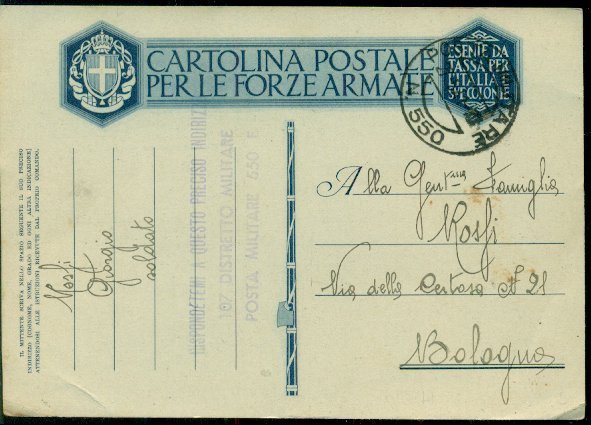 CARTOLINA POSTALE
PER LE FORZE ARMATE
ESENTE DA
TASSA PER
L'ITALIA
SVECCIONE
N. 550
Alla Gent.ma Famiglia
Via della Certosa N 21
Bologna
Giorgio
soldato
RISPONDETEMI A QUESTO PRECISO INDIRIZ
DISTRETTO MILITARE
POSTA MILITARE 550 E
IL MITTENTE SCRIVA NELLO SPAZIO SEGUENTE IL SUO PRECISO
INDIRIZZO (COGNOME, NOME, GRADO ED OGNI ALTRA INDICAZIONE)
ATTENENDOSI ALLE ISTRUZIONI RICEVUTE DAL PROPRIO COMANDO.